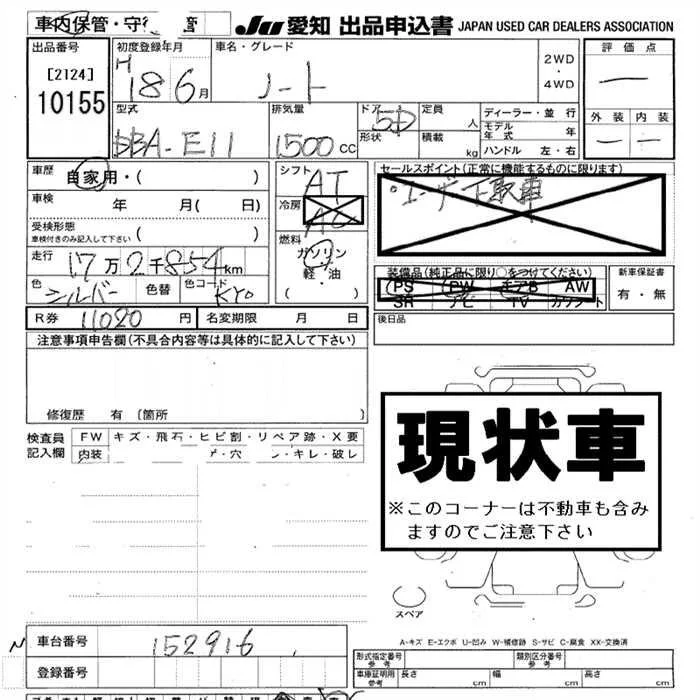 車内保管・守
JU 愛知 出品申込書 JAPAN USED CAR DEALERS ASSOCIATION
出品番号
[2124]
10155
初度登録年月
H 18 6月
車名・グレード
ノート
2WD
・
4WD
評価点
—
外装 内装
— —
型式
DBA-E11
排気量
1500 CC
ドア 5D
形状
定員 人
積載 kg
ディーラー・並行
モデル年式 年
ハンドル 左・右
車歴 自家用・( )
車検 年 月( 日)
受検形態
車検付きのみ記入して下さい ( )
走行 17万2千854km
色 シルバー 色替 色コード KY0
シフト AT
冷房 AC
燃料
ガソリン
軽・油
( )
セールスポイント(正常に機能するものに限ります)
・ユーザー下取車
装備品(純正品に限り○をつけてください)
PS PW エアB AW
SR ナビ TV カワシート
新車保証書
有・無
R券 11020 円 名変期限 月 日
後日品
注意事項申告欄(不具合内容等は具体的に記入して下さい)
修復歴 有 [箇所
検査員
記入欄
FW キズ・飛石・ヒビ割・リペア跡・X要
内装 ・穴 ・キレ・破レ
現状車
※このコーナーは不動車も含み
ますのでご注意下さい
スペア
A-キズ E-エクボ U-凹み W-補修跡 S-サビ C-腐食 XX-交換済
N 車台番号 152916
登録番号
形式指定番号
参考
類別区分番号
参考
車庫証明用
参考
長さ cm 幅 cm 高さ cm